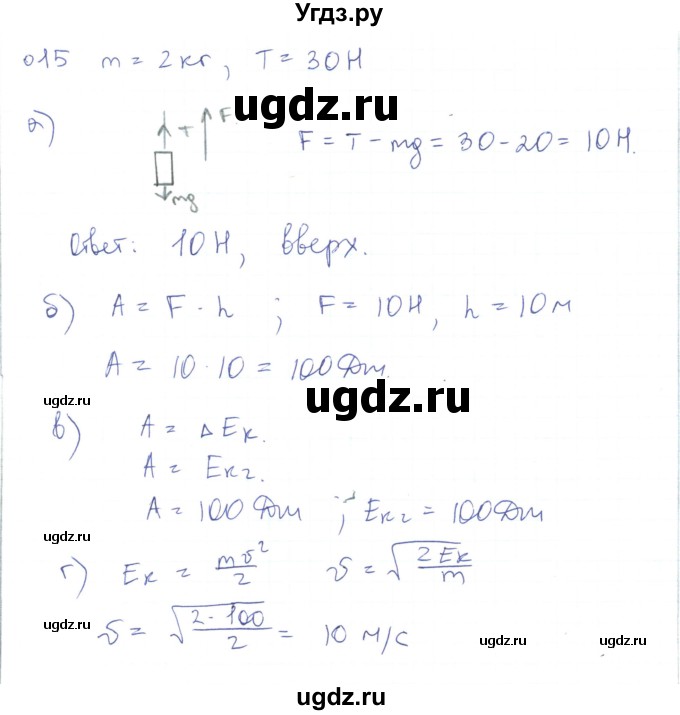 Угдз.ру
015 m = 2кг, T = 30Н
а) T F F = T - mg = 30 - 20 = 10Н.
ugdz.ru
mg
Ответ: 10Н, вверх.
б) A = F · h ; F = 10Н, h = 10м
A = 10 · 10 = 100Дж.
ugdz.ru
ugdz.ru
в) A = ΔEк.
A = Eк2.
A = 100Дж ; Eк2 = 100Дж
ugdz.ru
г) Eк = mv²/2 v = √(2Eк/m)
ugdz.ru
v = √(2·100/2) = 10 м/с
ugdz.ru ugdz.ru
ugdz.ru